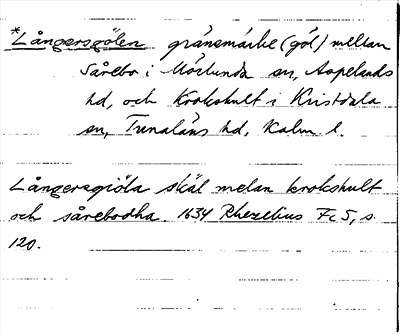 *Långersgölen gränsmärke (göl) mellan
Sårebo i Mörlunda sn, Aspelands
hd, och Krokshult i Kristdala
sn, Tunaläns hd, Kalm l.
Långersgiöla skäl melan krokshult
och sårebodha. 1634 Rhezelius Fc 5, s.
120.